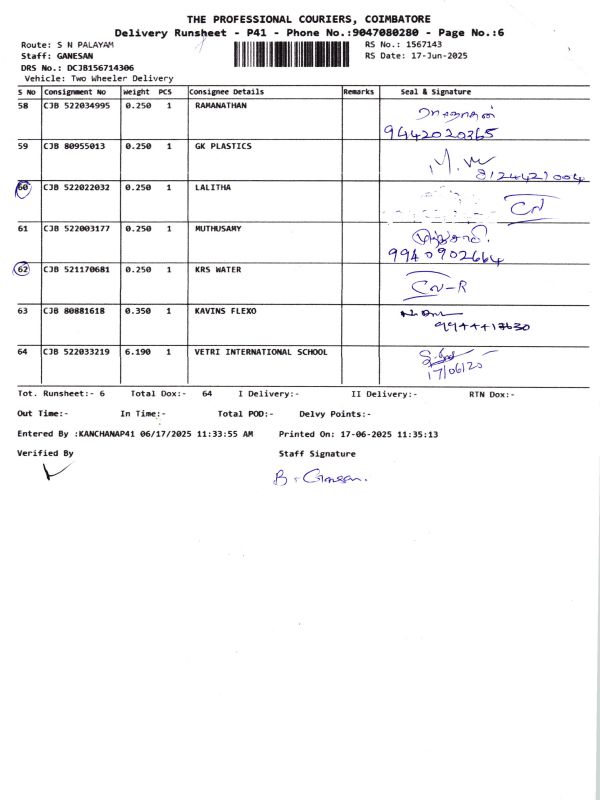 THE PROFESSIONAL COURIERS, COIMBATORE
Delivery Runsheet - P41 - Phone No.:9047080280 - Page No.:6
Route: S N PALAYAM RS No.: 1567143
Staff: GANESAN RS Date: 17-Jun-2025
DRS No.: DCJB156714306
Vehicle: Two Wheeler Delivery
S No Consignment No Weight PCS Consignee Details Remarks Seal & Signature
58 CJB 522034995 0.250 1 RAMANATHAN
9442020365
59 CJB 80955013 0.250 1 GK PLASTICS
8124421004
60 CJB 522022032 0.250 1 LALITHA
61 CJB 522003177 0.250 1 MUTHUSAMY
9940902664
62 CJB 521170681 0.250 1 KRS WATER
63 CJB 80881618 0.350 1 KAVINS FLEXO
9944417630
64 CJB 522033219 6.190 1 VETRI INTERNATIONAL SCHOOL
17/06/25
Tot. Runsheet:- 6 Total Dox:- 64 I Delivery:- II Delivery:- RTN Dox:-
Out Time:- In Time:- Total POD:- Delvy Points:-
Entered By :KANCHANAP41 06/17/2025 11:33:55 AM Printed On: 17-06-2025 11:35:13
Verified By Staff Signature